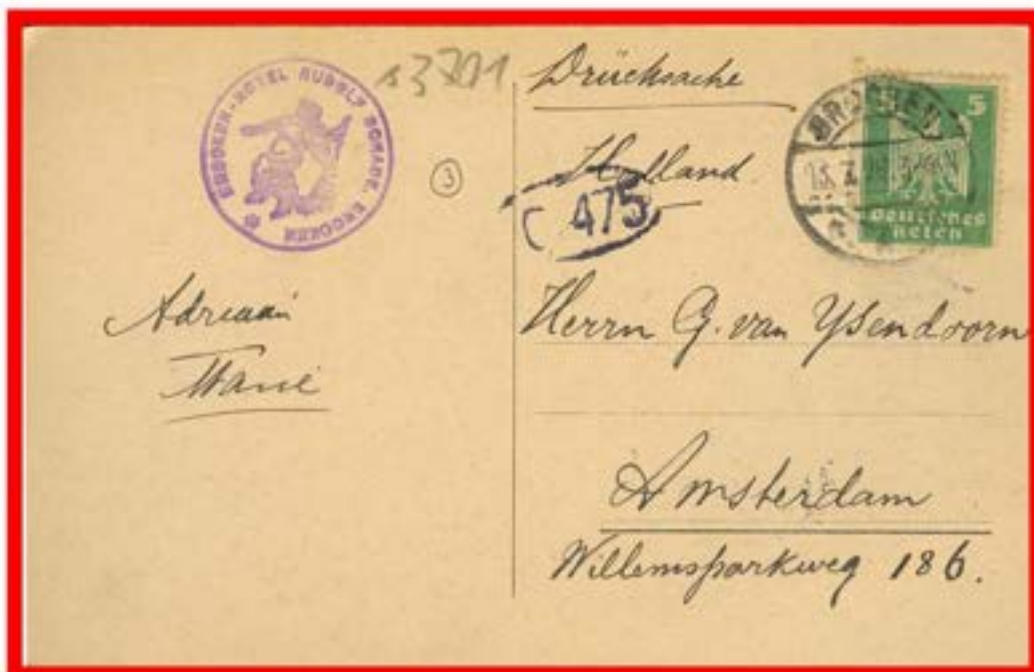 BROCKEN-HOTEL RUDOLF SCHADE, BROCKEN
Adriaan
Marie
Drücksache
Holland
475
BROCKEN
5
Deutsches
Reich
Herrn G. van Ysendoorn
Amsterdam
Willemsparkweg 186.
3